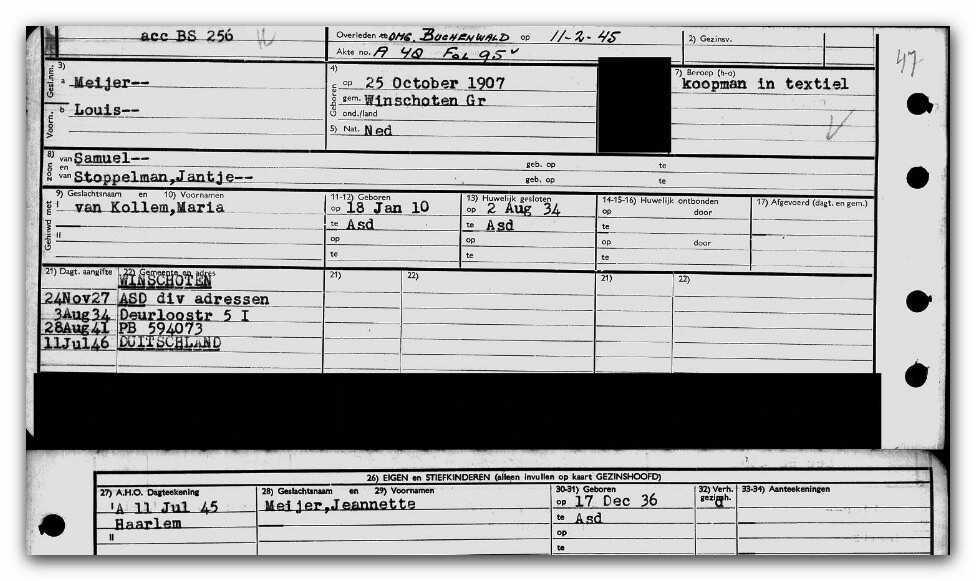 acc BS 256
Overleden te omg. BUCHENWALD op 11-2-45
Akte no. A 48 Fol 95v
2) Gezinsv.
47
3)
Gesl.nm. a Meijer--
Voorn. b Louis--
4)
Geboren op 25 October 1907
gem. Winschoten Gr
ond./land
5) Nat. Ned
7) Beroep (h-o)
koopman in textiel
8)
zoon van Samuel-- geb. op te
en
van Stoppelman,Jantje-- geb. op te
Gehuwd met
9) Geslachtsnaam en 10) Voornamen
I van Kollem,Maria
II
11-12) Geboren
op 18 Jan 10
te Asd
op
te
13) Huwelijk gesloten
op 2 Aug 34
te Asd
op
te
14-15-16) Huwelijk ontbonden
op door
te
op door
te
17) Afgevoerd (dagt. en gem.)
21) Dagt. aangifte 22) Gemeente en adres
WINSCHOTEN
24Nov27 ASD div adressen
3Aug34 Deurloostr 5 I
28Aug41 PB 594073
11Jul46 DUITSCHLAND
21) 22)
21) 22)
26) EIGEN en STIEFKINDEREN (alleen invullen op kaart GEZINSHOOFD)
27) A.H.O. Dagteekening
'A 11 Jul 45
Haarlem
II
28) Geslachtsnaam en 29) Voornamen
Meijer,Jeannette
30-31) Geboren
op 17 Dec 36
te Asd
op
te
32) Verh.
gezinsh.
d
33-34) Aanteekeningen